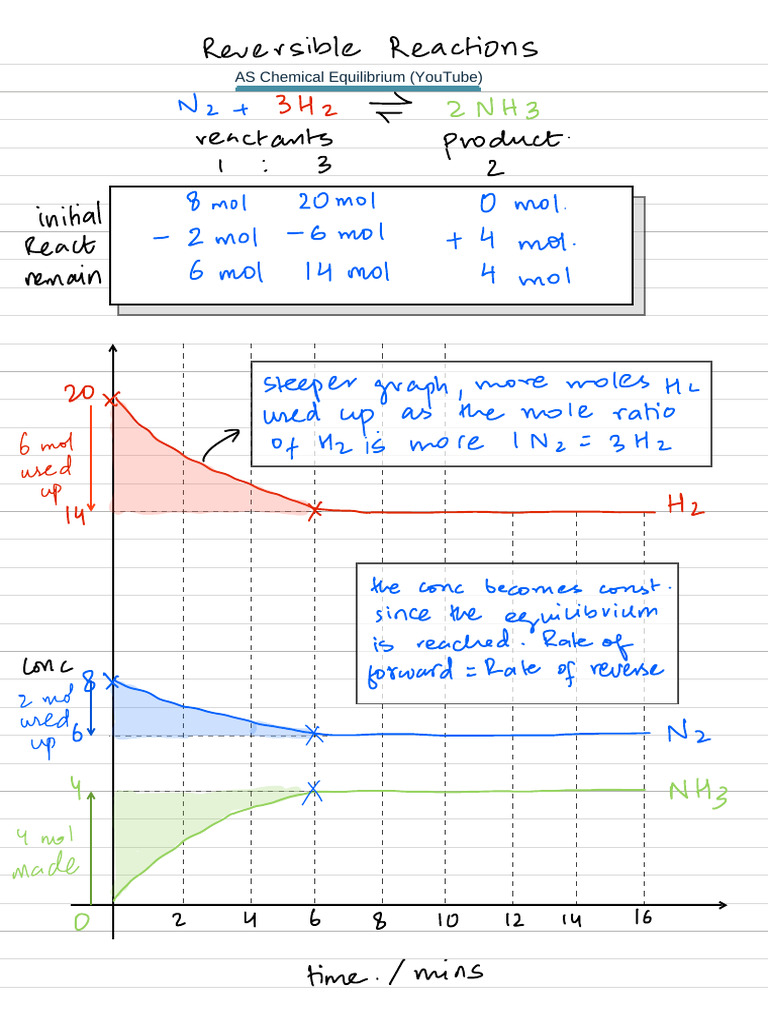 Reversible Reactions
AS Chemical Equilibrium (YouTube)
N2 + 3H2 ⇌ 2NH3
reactants product.
1 : 3 2
initial 8 mol 20 mol 0 mol.
React - 2 mol - 6 mol + 4 mol.
remain 6 mol 14 mol 4 mol
20
6 mol
used
up
14
steeper graph, more moles H2
used up as the mole ratio
of H2 is more 1N2 = 3H2
H2
the conc becomes const.
since the equilibrium
is reached. Rate of
forward = Rate of reverse
conc
8
2 mol
used
up
6
N2
4
NH3
4 mol
made
0
2 4 6 8 10 12 14 16
time. / mins